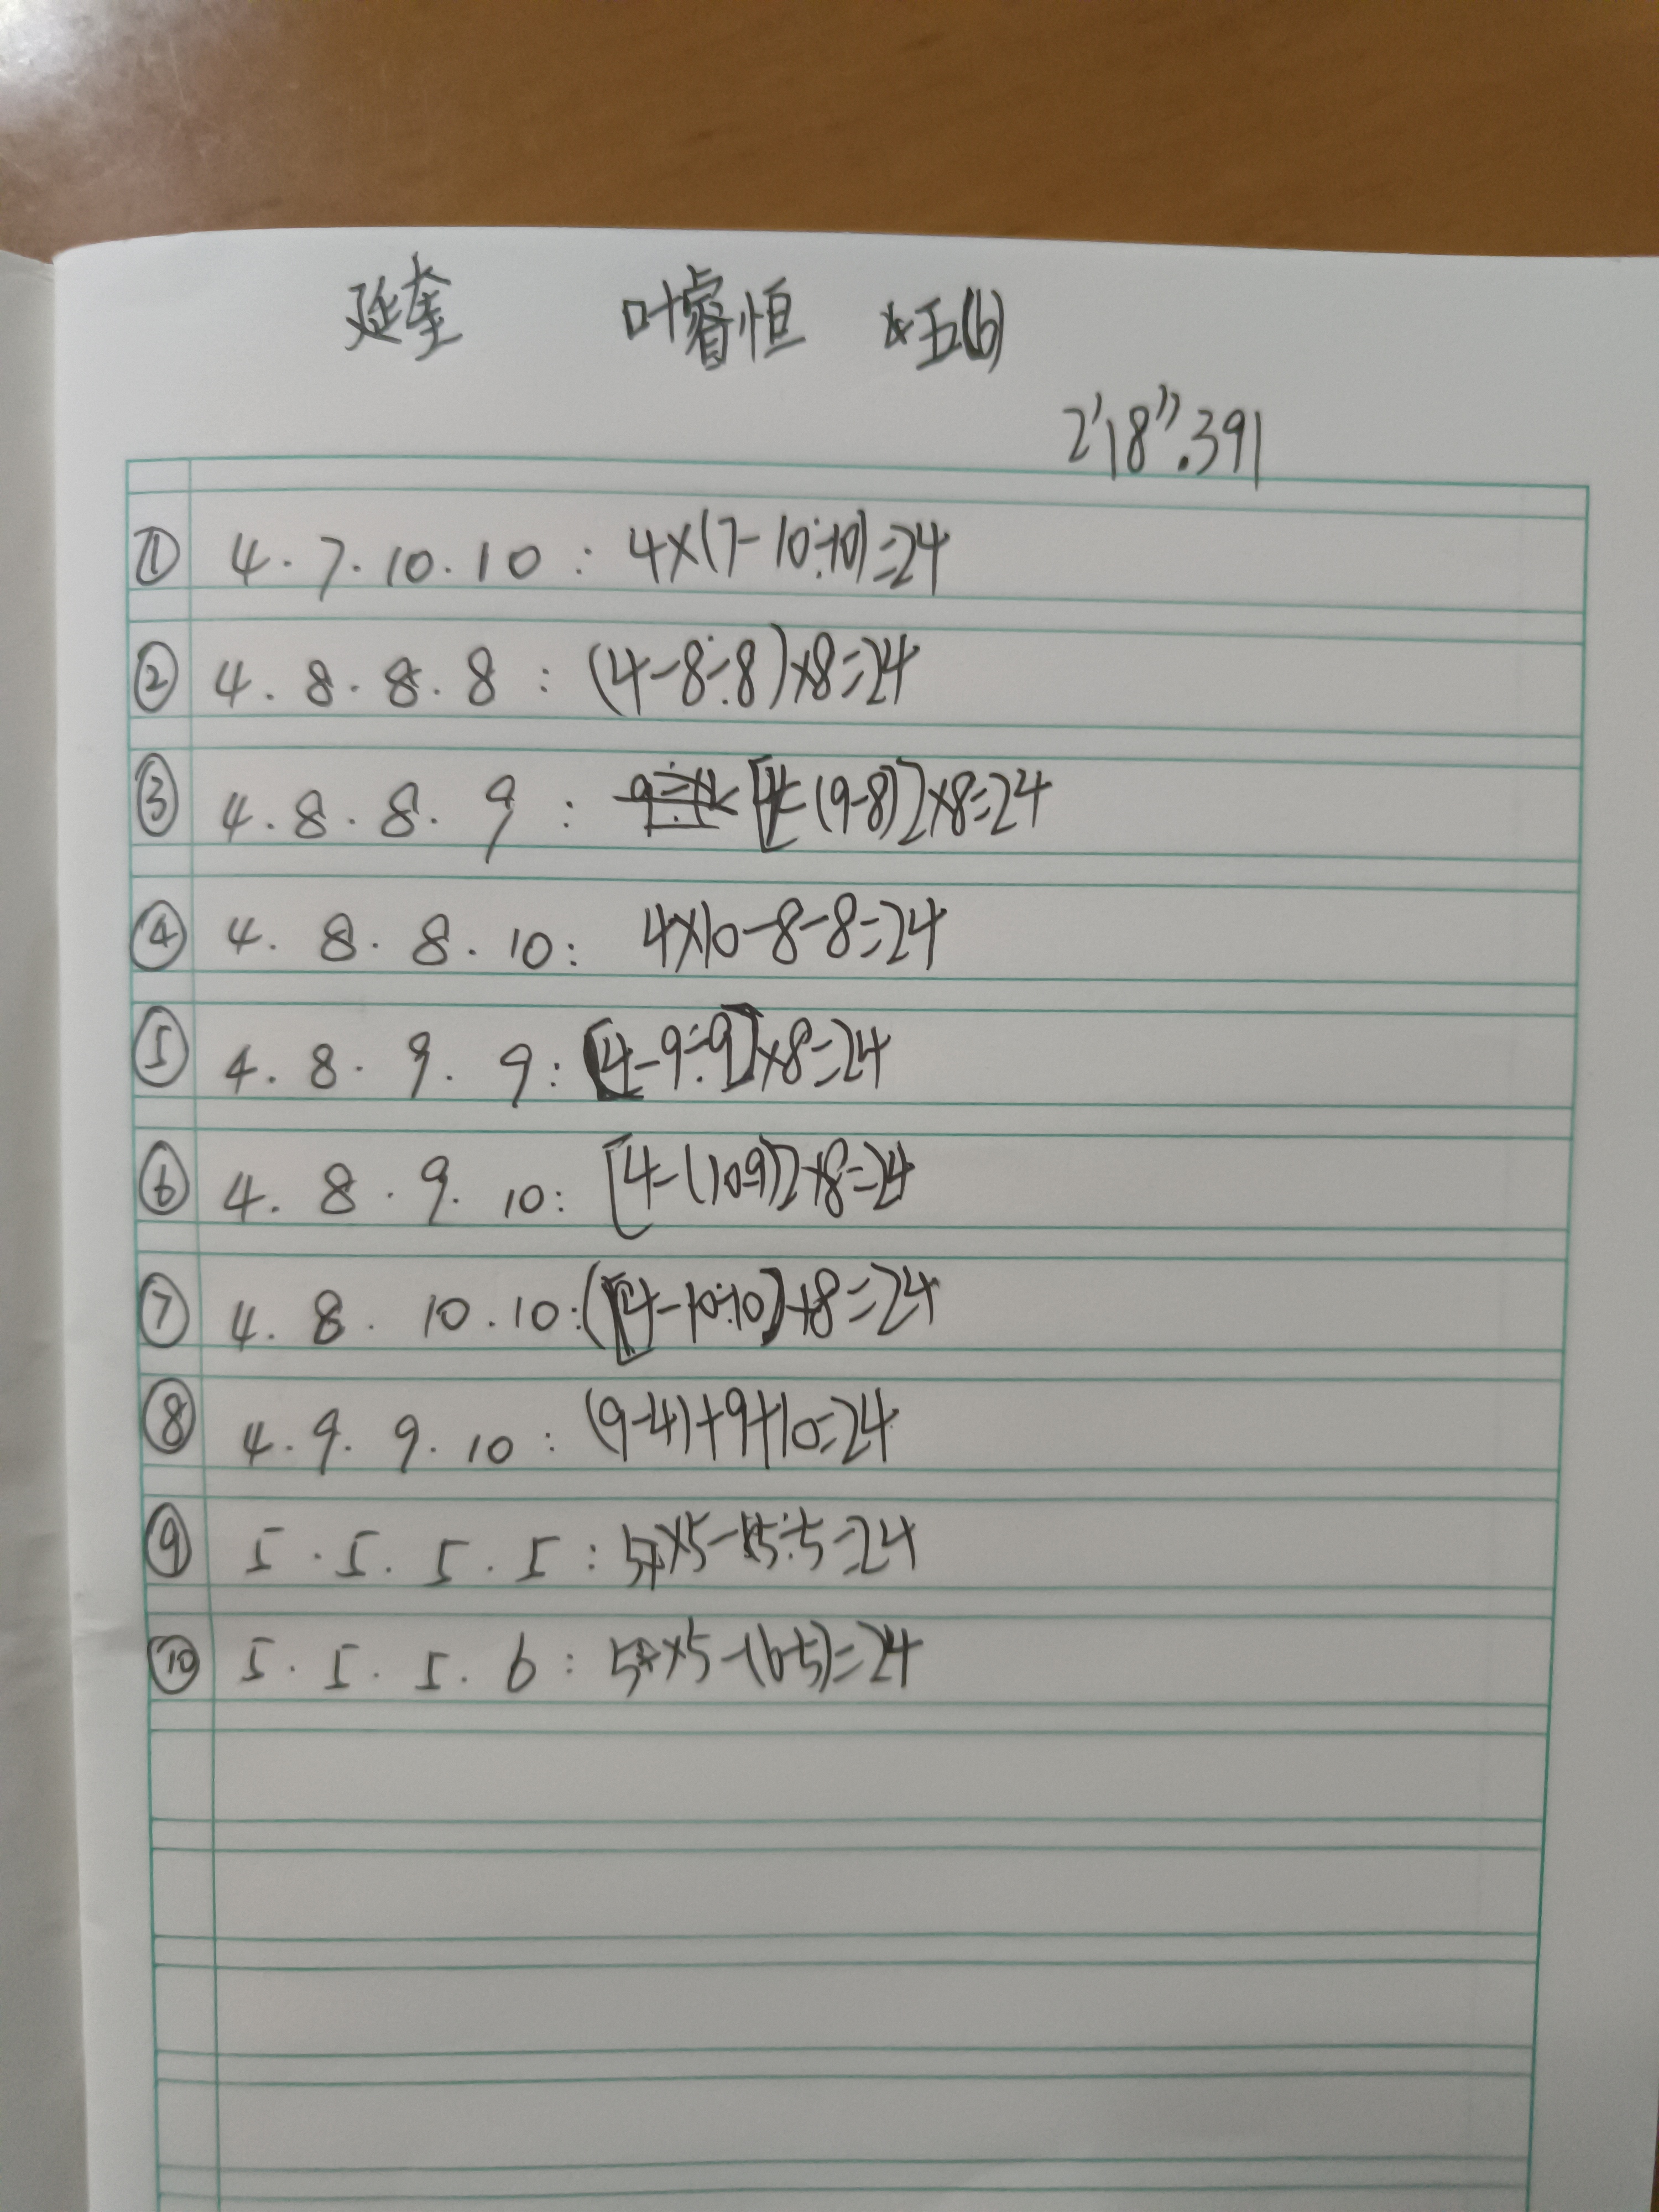 延奎 叶睿恒 五(6)
2'18".391
① 4.7.10.10: 4×(7-10÷10)=24
② 4.8.8.8: (4-8÷8)×8=24
③ 4.8.8.9: [4-(9-8)]×8=24
④ 4.8.8.10: 4×10-8-8=24
⑤ 4.8.9.9: [4-9÷9]×8=24
⑥ 4.8.9.10: [4-(10-9)]×8=24
⑦ 4.8.10.10: ([4-10÷10]×8=24
⑧ 4.9.9.10: (9-4)+9+10=24
⑨ 5.5.5.5: 5×5-5÷5=24
⑩ 5.5.5.6: 5×5-(6-5)=24